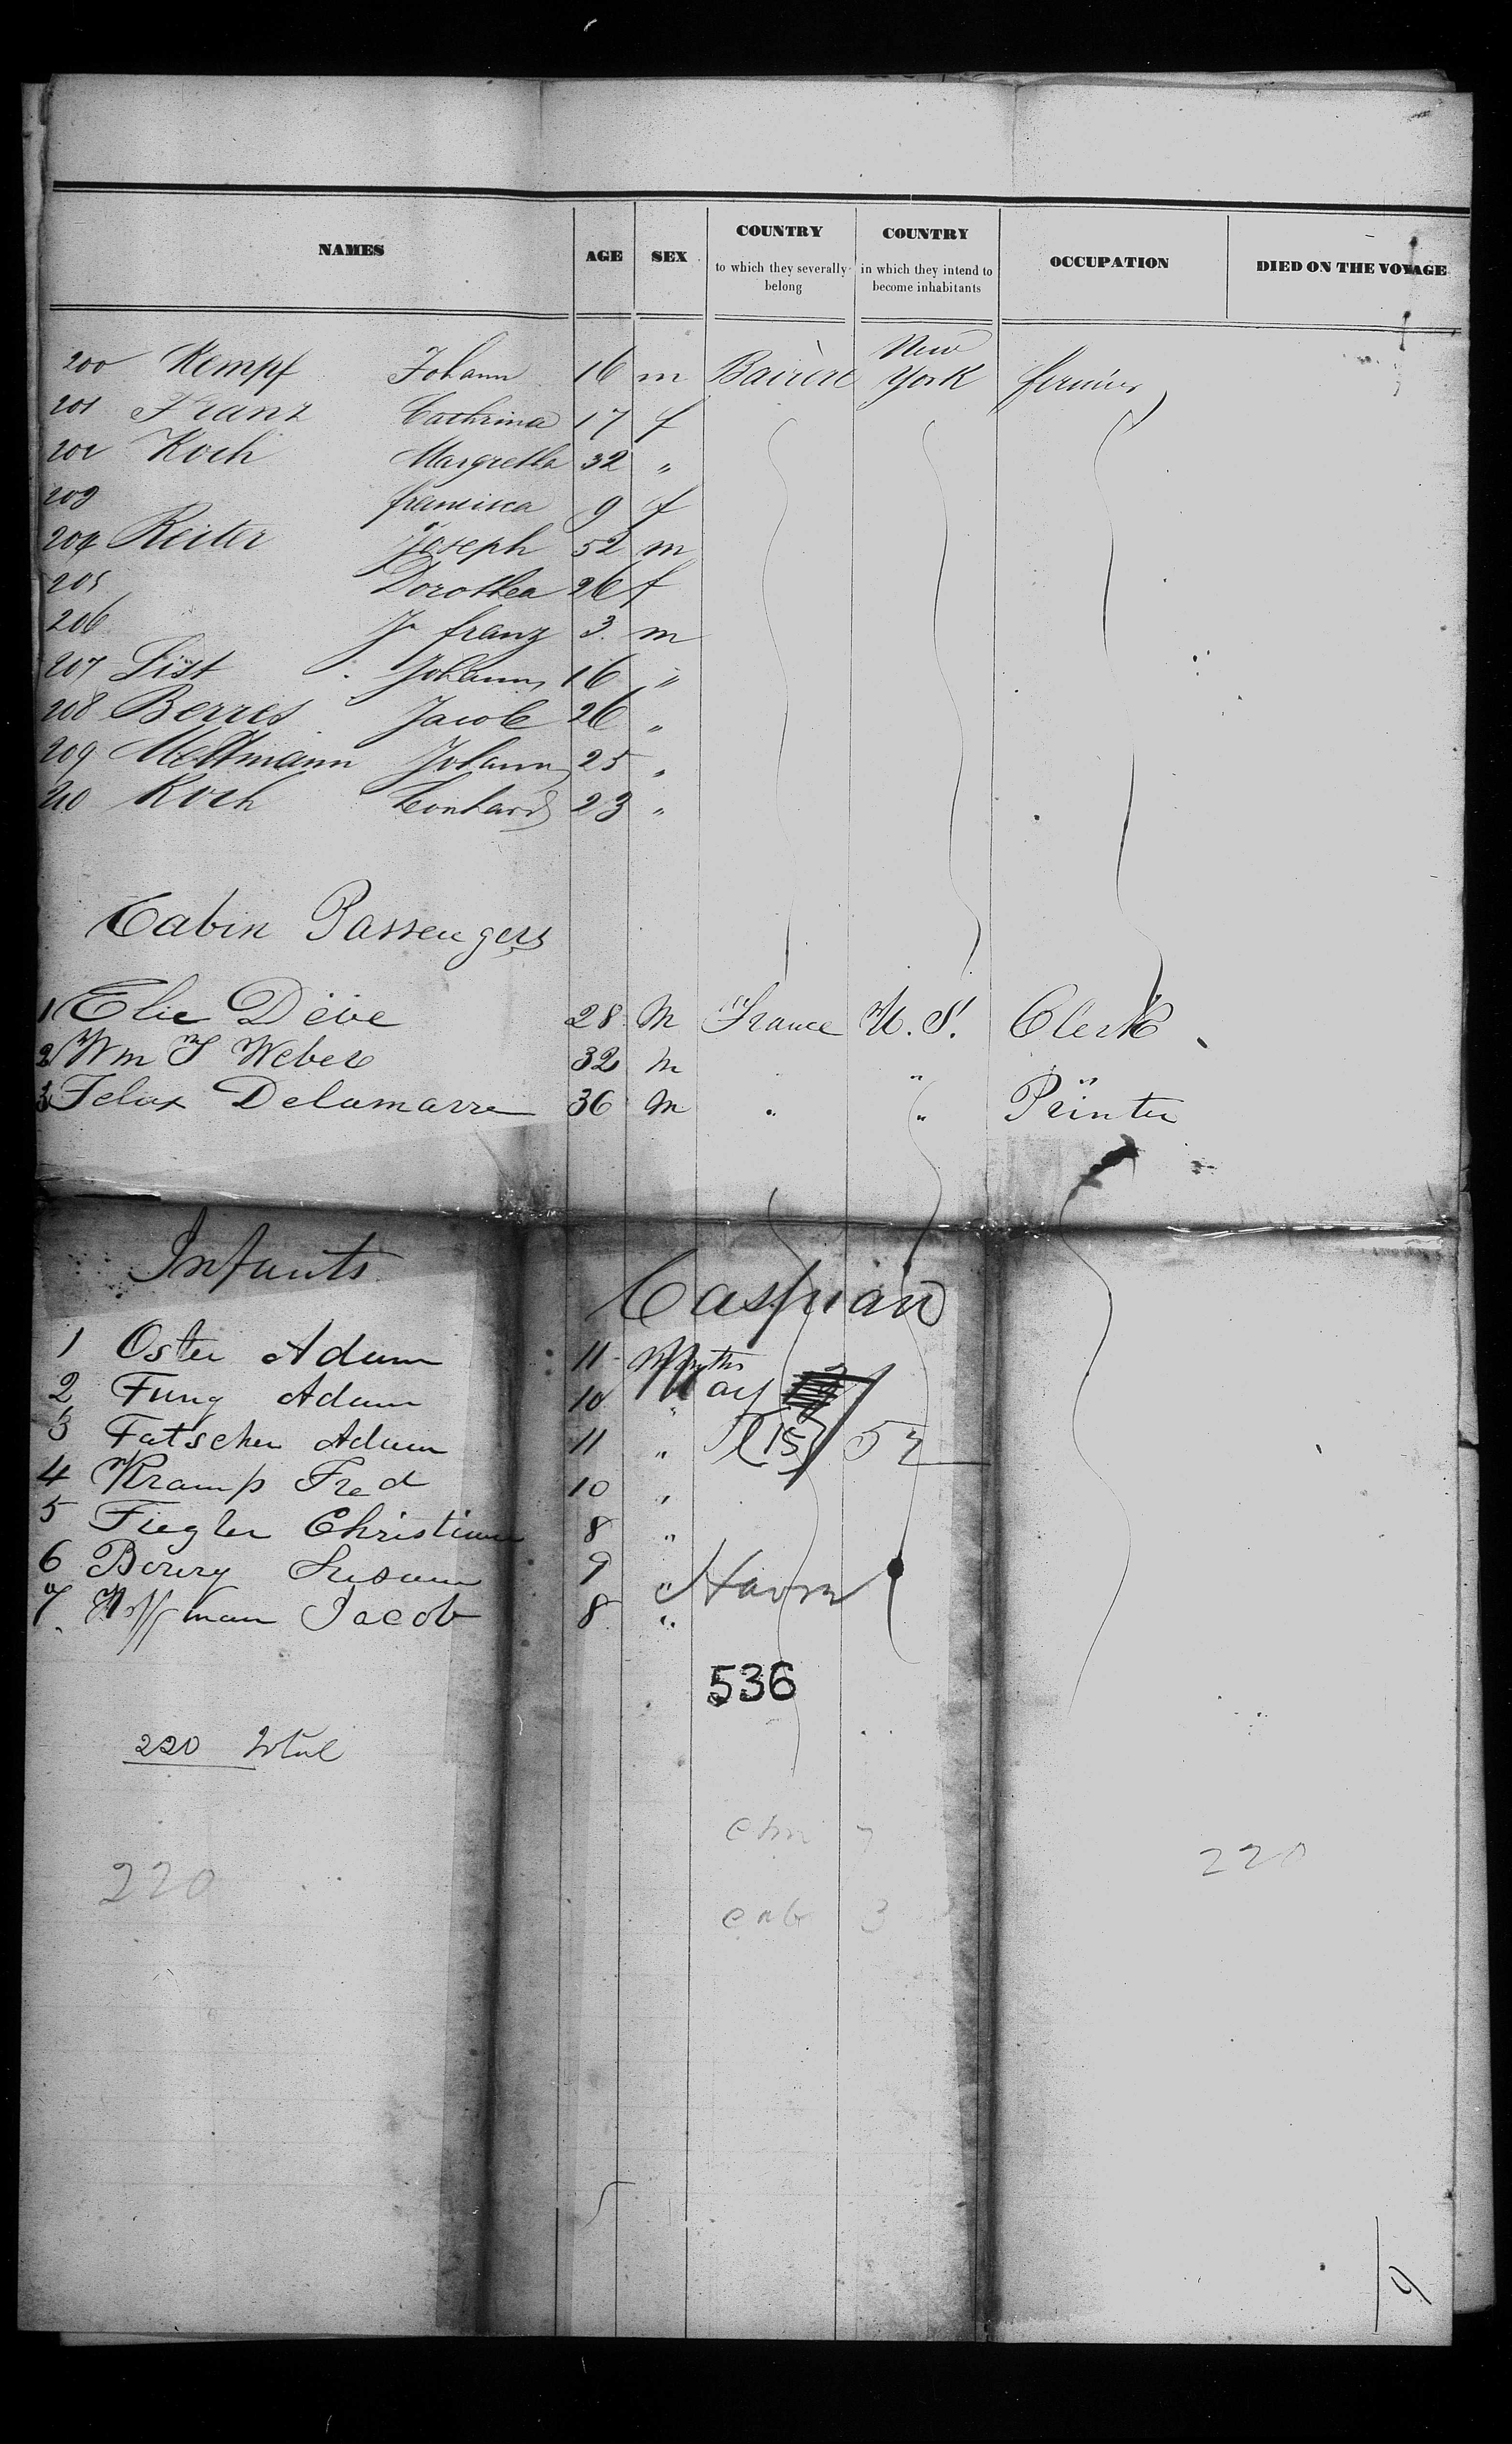 NAMES AGE SEX COUNTRY to which they severally belong COUNTRY in which they intend to become inhabitants OCCUPATION DIED ON THE VOYAGE
200 Kempf Johann 16 m Baviere New York fermier
201 Franz Cathrina 17 f
202 Koch Margretha 32 "
203 francisca 9 f
204 Reiter Joseph 52 m
205 Dorothea 26 f
206 Jn franz 3 m
207 List Johann 16 "
208 Berres Jacob 26 "
209 Johann 25 "
210 Koch Leonhard 23 "
Cabin Passengers
1 Elie Déve 28 M France U.S. Clerk
2 Wm S Weber 32 M " "
3 Felix Delamarre 36 M " " Printer
Infants
Caspian
1 Oster Adam 11 Months
2 Fung Adam 10 "
May
3 Fatscher Adam 11 "
15 / 57
4 Kramp Fred 10 "
5 Fiegler Christian 8 "
6 Susann 9 "
Havre
7 Hoffman Jacob 8 "
536
220 total
chn 7
220
220
cab 3
9